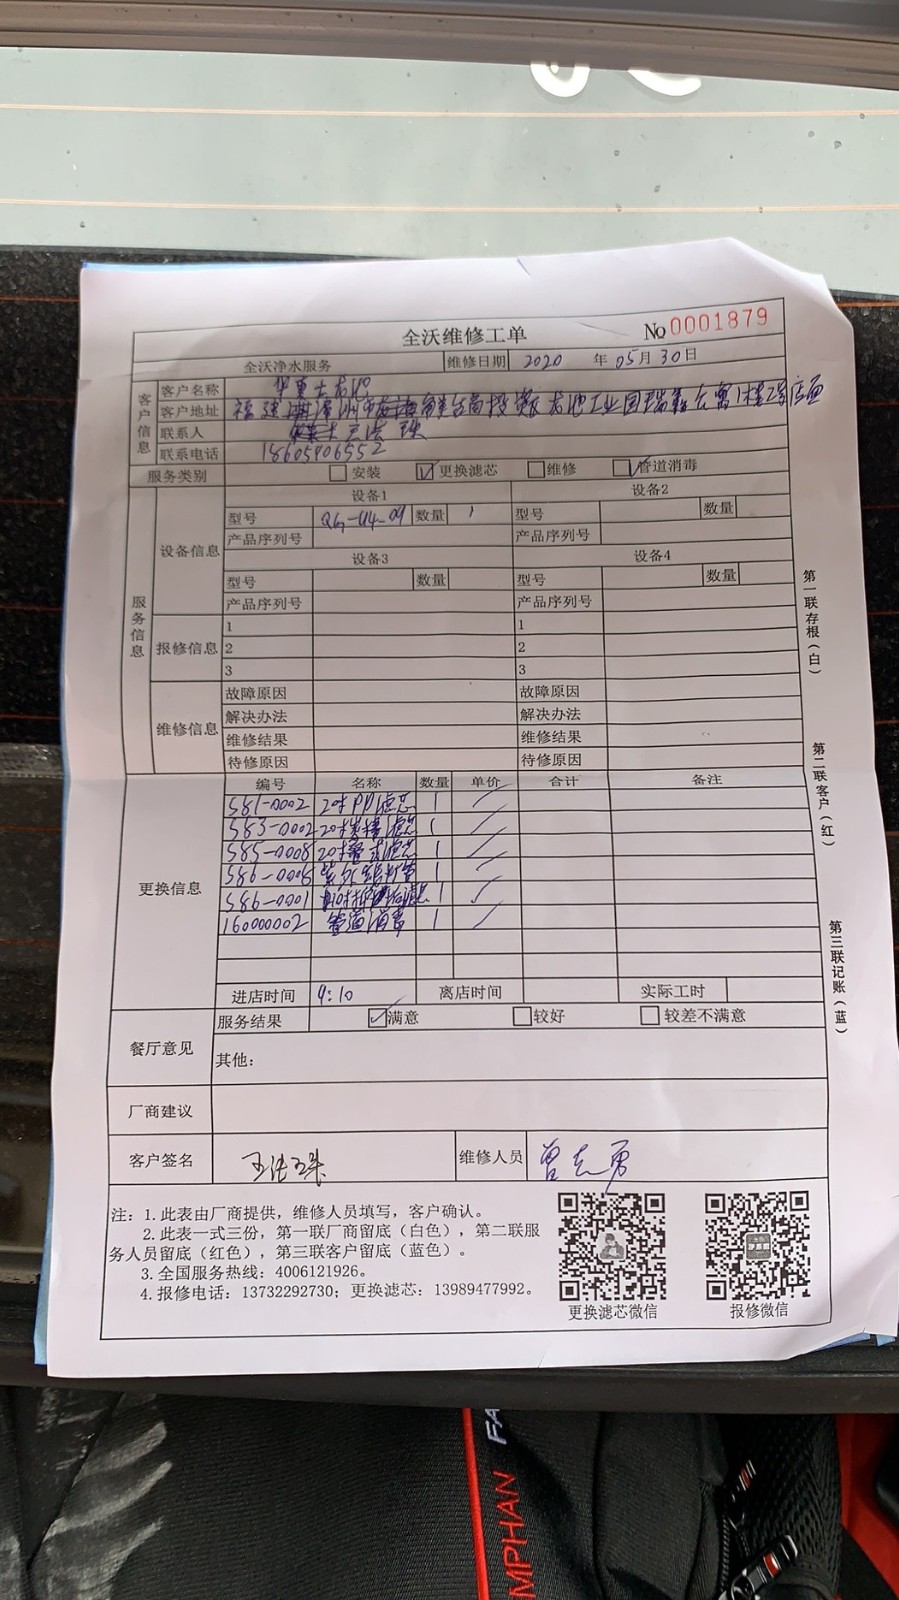 全沃维修工单 № 0001879
全沃净水服务 维修日期 2020 年 05 月 30 日
客户信息
客户名称
客户地址 福建 漳州市 1楼2号店面
联系人
联系电话 18605906552
服务类别 安装 更换滤芯 维修 管道消毒
服务信息
设备信息
设备1 设备2
型号 QG-U4-09 数量 1 型号 数量
产品序列号 产品序列号
设备3 设备4
型号 数量 型号 数量
产品序列号 产品序列号
报修信息
1 1
2 2
3 3
维修信息
故障原因 故障原因
解决办法 解决办法
维修结果 维修结果
待修原因 待修原因
更换信息
编号 名称 数量 单价 合计 备注
581-0002 20寸PP滤芯 1
583-0002 20寸 滤芯 1
585-0008 20寸 滤芯 1
586-0005 1
586-0001 1
160000002 管道消毒 1
进店时间 9:10 离店时间 实际工时
餐厅意见
服务结果 满意 较好 较差不满意
其他：
厂商建议
客户签名 维修人员 曾志勇
注：1.此表由厂商提供，维修人员填写，客户确认。
2.此表一式三份，第一联厂商留底（白色），第二联服
务人员留底（红色），第三联客户留底（蓝色）。
3.全国服务热线：4006121926。
4.报修电话：13732292730；更换滤芯：13989477992。
更换滤芯微信 报修微信
第一联存根（白）
第二联客户（红）
第三联记账（蓝）
MPHAN FA